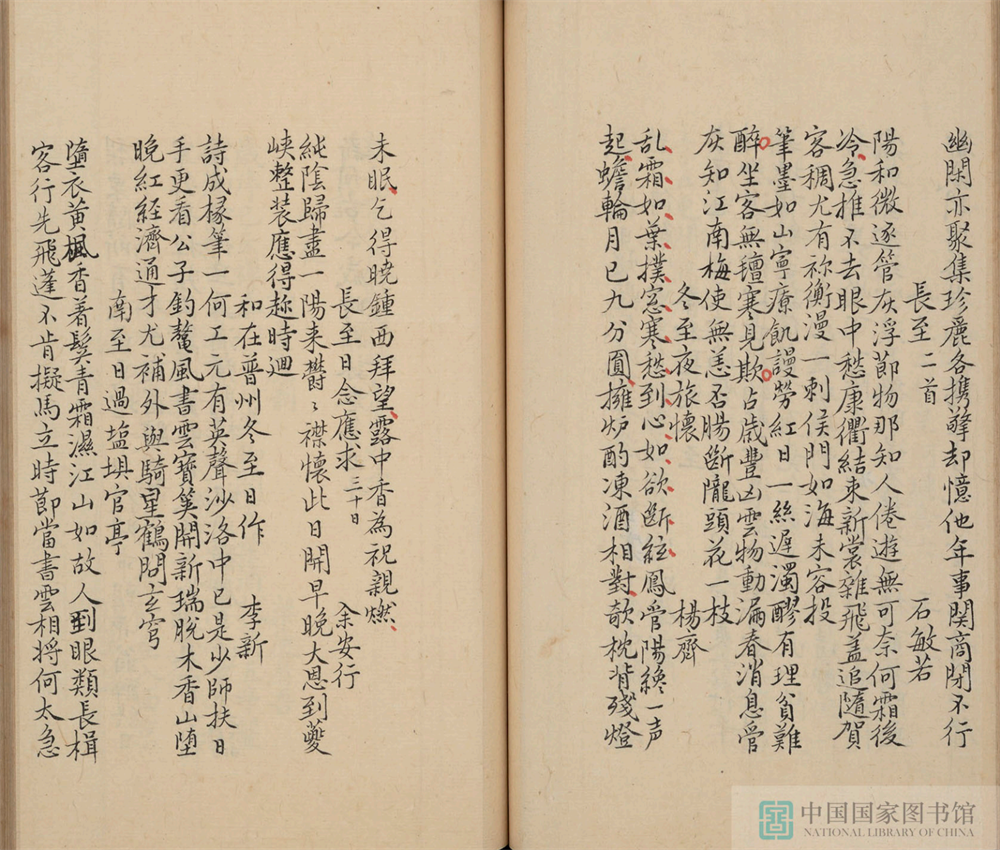 幽閑亦聚集珍麗各携擎却憶他年事関商閉不行
長至二首 石敏若
陽和微逐管灰浮節物那知人倦遊無可奈何霜後
冷急推不去眼中愁康衢結束新裳雜飛盖追隨賀
客稠尤有祢衡漫一刺侯門如海未容投
筆墨如山寧療飢謾勞紅日一絲遲濁醪有理貧難
醉坐客無氊寒見欺占歳豊凶雲物動漏春消息管
灰知江南梅使無恙否腸断隴頭花一枝
冬至夜旅懷 楊齊
乱霜如葉撲窓寒愁到心如欲断絃鳳管陽纔一声
起蟾輪月已九分圓擁炉酌凍酒相對欹枕背残燈
未眠乞得曉鍾西拜望露中香為祝親燃
長至日念應求三十日 余安行
純陰歸盡一陽来欝〻襟懷此日開早晚大恩到夔
峡整装應得趂時迴
和在普州冬至日作 李新
詩成椽筆一何工元有英聲沙洛中已是少師扶日
手更看公子釣鰲風書雲寶筴開新瑞脫木香山堕
晚紅経濟通才尤補外與騎星鶴問玄穹
南至日過塩埧官亭
墮衣黄楓香着鬓青霜濕江山如故人到眼類長楫
客行先飛蓬不肯擬馬立時節當書雲相將何太急
中国国家图书馆
NATIONAL LIBRARY OF CHINA